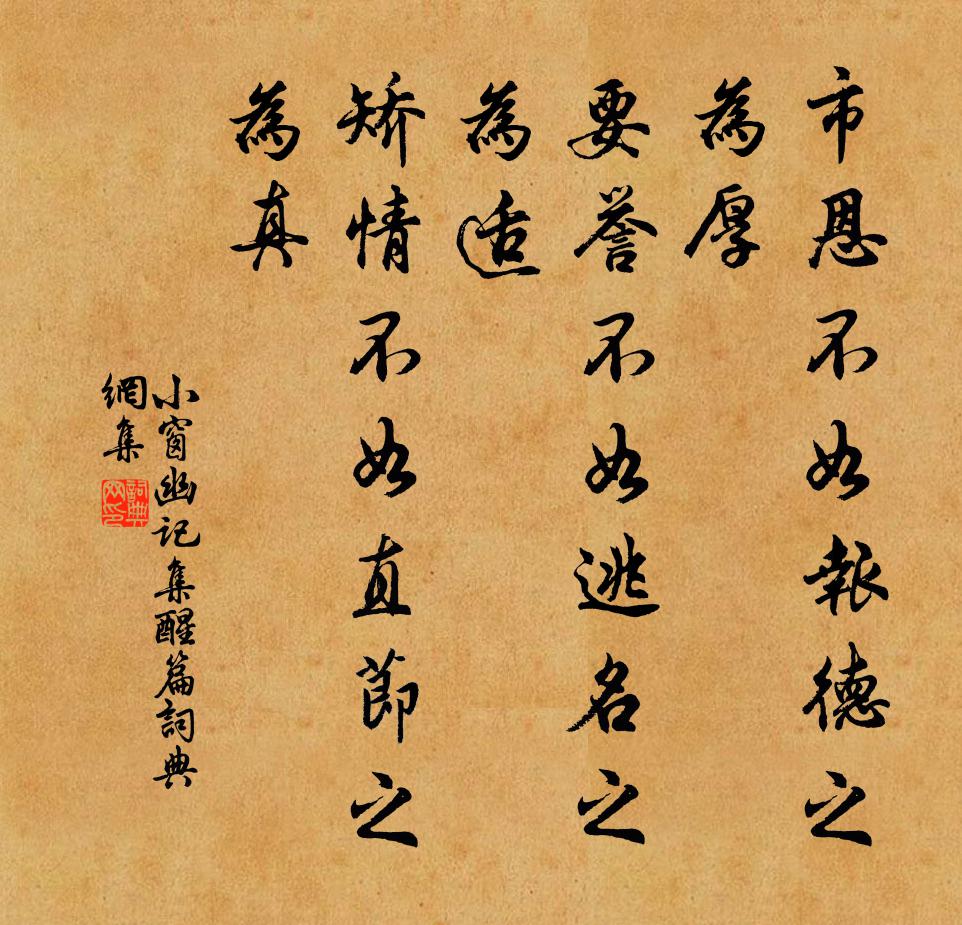 市恩不如報德之
為厚
要譽不如逃名之
為适
矯情不如直節之
為真
小窗幽记集醒篇詞典
網集
詞典
网印